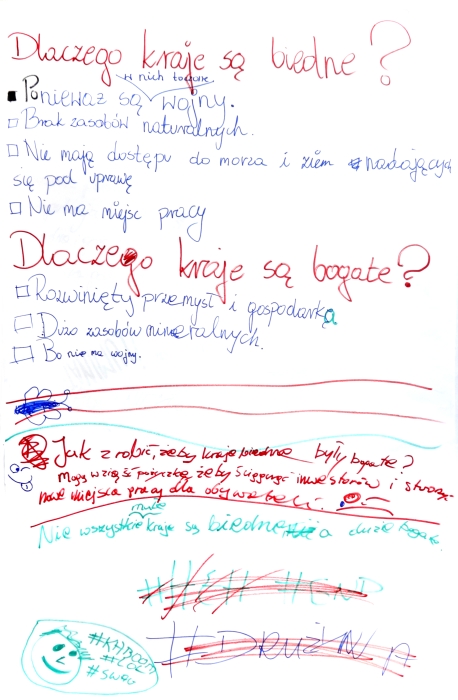 Dlaczego kraje są biedne?
w nich toczone
Ponieważ są wojny.
Brak zasobów naturalnych.
Nie mają dostępu do morza i ziem nadających
się pod uprawę
Nie ma miejsc pracy
Dlaczego kraje są bogate?
Rozwinięty przemysł i gospodarka
Dużo zasobów mineralnych.
Bo nie ma wojny.
Jak zrobić, żeby kraje biedne były bogate?
Mogą wziąść pożyczkę żeby ściągnąć inwestorów i stworzyć
nowe miejsca pracy dla obywateli.
małe
Nie wszystkie kraje są biedne a duże bogate
#END
#DRUŻYNA
#KABOOM
#LOL
#SWAG